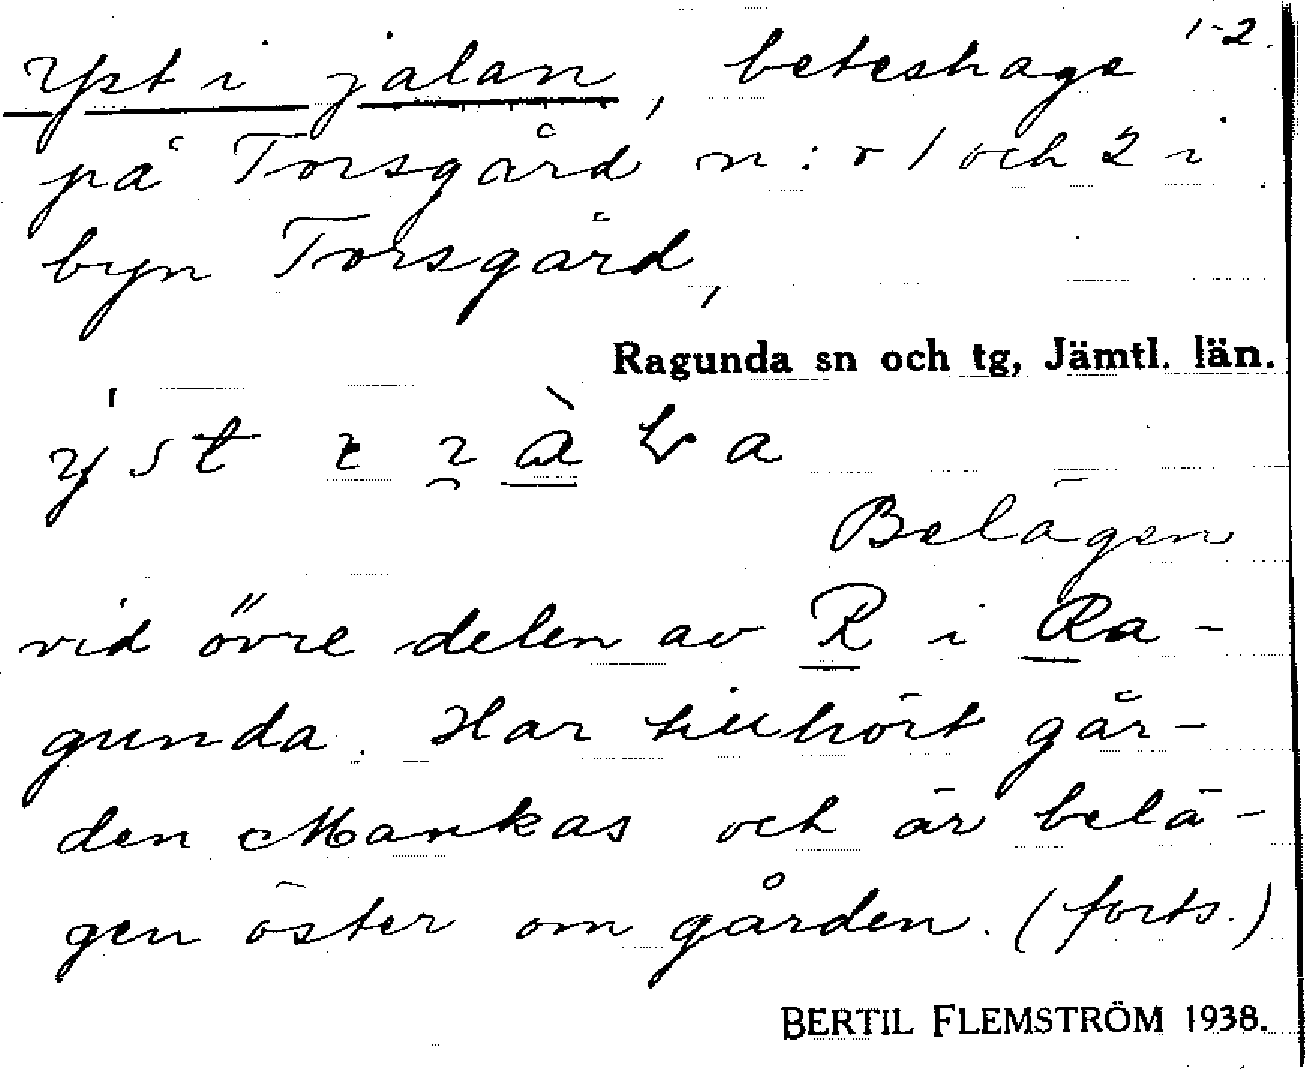 1-2.
Yst i jalan, beteshage
på Torsgård n:r 1 och 2 i
byn Torsgård,
Ragunda sn och tg, Jämtl. län.
Belägen
vid övre delen av R i Ra-
gunda. Har tillhört går-
den Mankas och är belä-
gen öster om gården. (forts.)
BERTIL FLEMSTRÖM 1938.